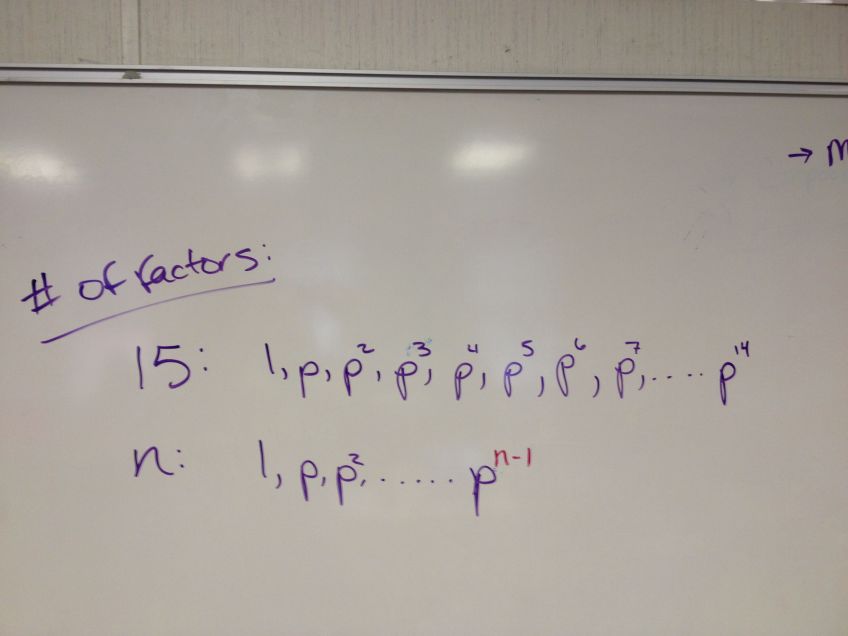 → m
# of factors:
15: 1, p, p², p³, p⁴, p⁵, p⁶, p⁷, ..... p¹⁴
n: 1, p, p², ...... pⁿ⁻¹